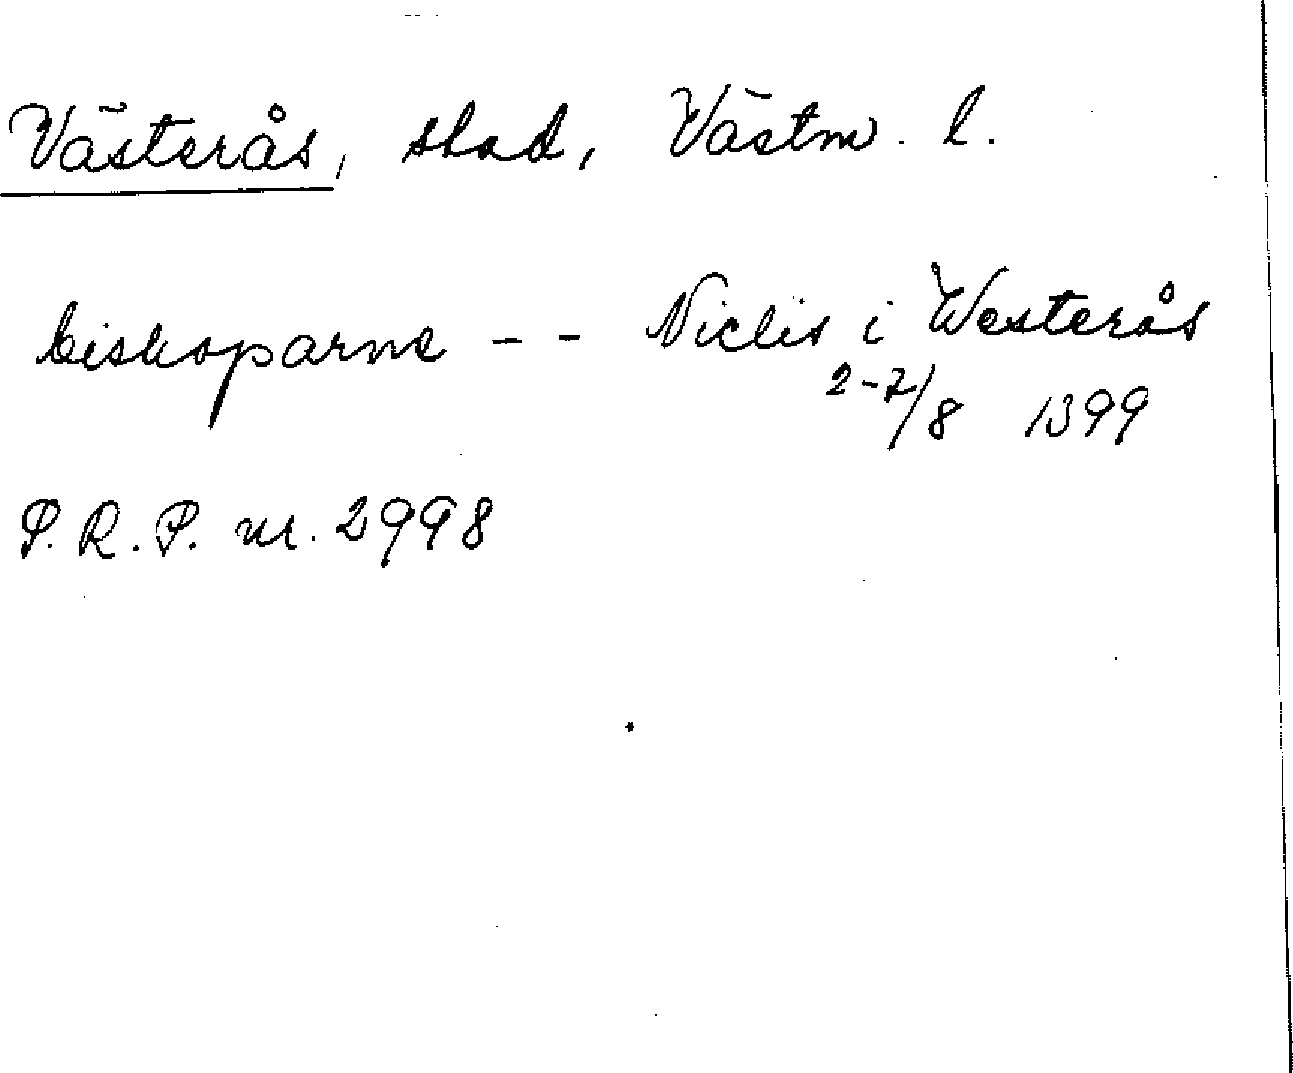 Västerås, stad, Västm. l.
biskoparne - - Niclis i Westerås
2-7/8 1399
P.R.P. nr. 2998